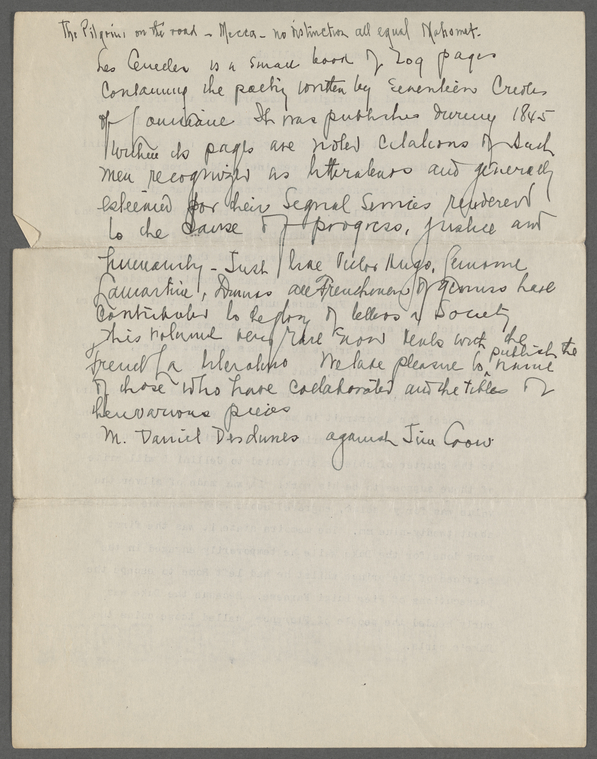 The Pilgrims on the road - Mecca - no distinction all equal Mahomet.
Les Cenelles is a small book of 209 pages
containing the poetry written by seventeen Creoles
of Louisiane It was published during 1845
Within its pages are noted citations of such
men recognized as litterateurs and generally
esteemed for their Segnal Services rendered
to the cause of progress, justice and
humanity - Just like Victor Hugo,
Lamartine, Dumas all Frenchmen of genius have
contributed to the glory of letters & Society
This volume very rare now deals with the
french literature We take pleasure to publish the name
of those who have collaborated and the titles of
their various pieces
M. Daniel Desdunes against Jim Crow